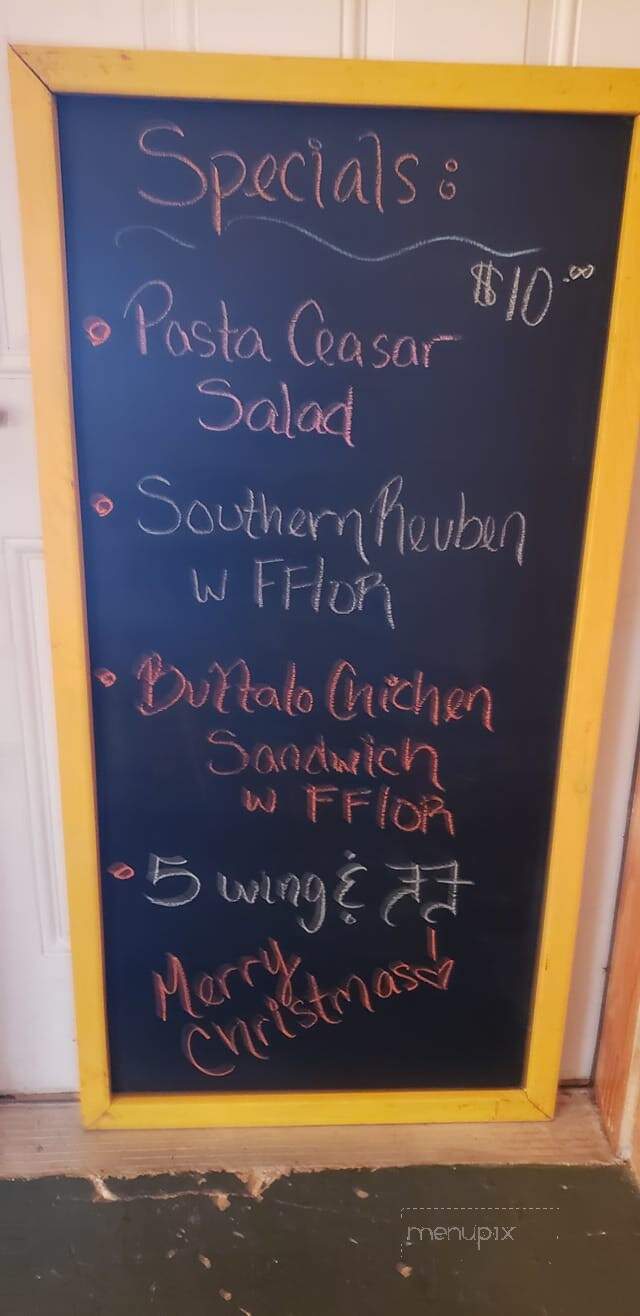 Specials:
$10.00
• Pasta Ceasar
Salad
• Southern Reuben
w FF/OR
• Buffalo Chichen
Sandwich
w FF/OR
• 5 wing & FF
Merry
Christmas!
menupix